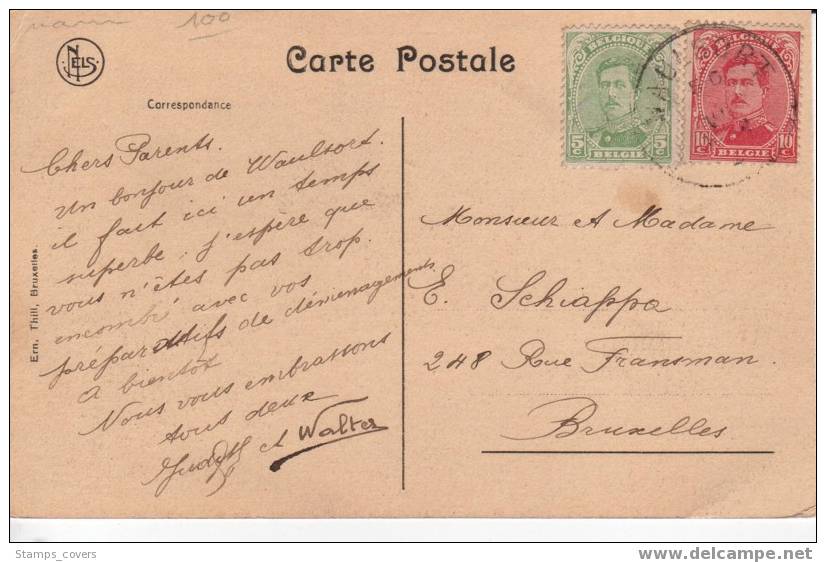 100
NELS
Carte Postale
Correspondance
Chers Parents.
Un bonjour de Waulsort.
il fait ici un temps
superbe. j'espère que
vous n'êtes pas trop
encombré avec vos
préparatifs de déménagements
A bientot
Nous vous embrassons
tous deux
et Walter
Ern. Thill, Bruxelles.
BELGIQUE
5c 5c
BELGIË
BELGIQUE
10c 10c
BELGIË
Monsieur et Madame
E. Schiappa
248 Rue Fransman.
Bruxelles
Stamps_covers
www.delcampe.net